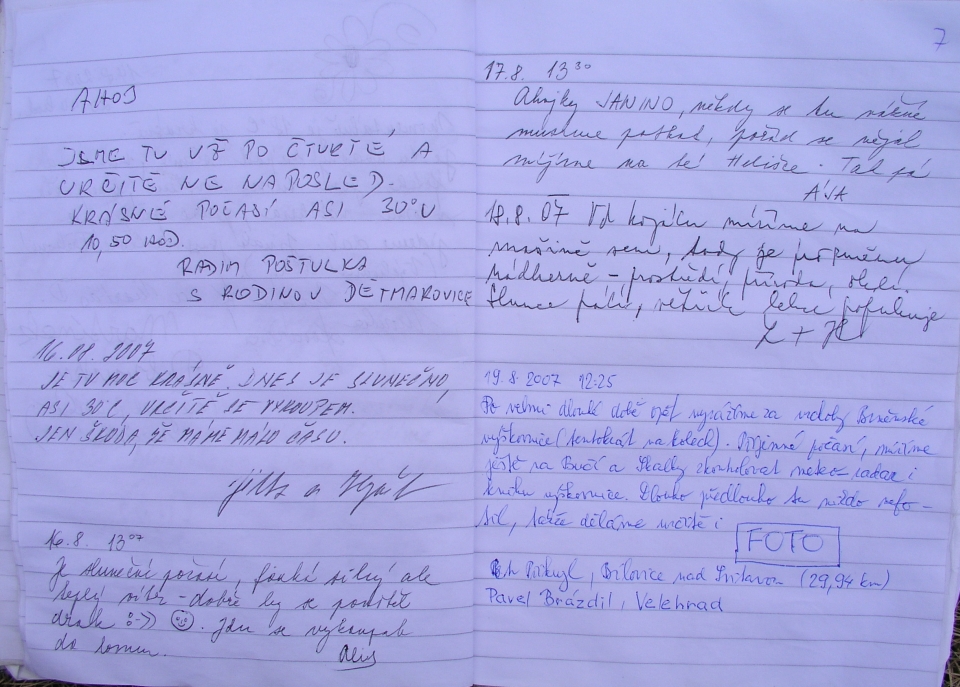 AHOJ
JSME TU UŽ PO ČTVRTÉ A
URČITĚ NE NAPOSLED.
KRÁSNÉ POČASÍ ASI 30°U
10,50 HOD.
RADIM POŠTULKA
S RODINOU DĚTMAROVICE
16.08.2007
JE TU MOC KRÁSNĚ. DNES JE SLUNEČNO,
ASI 30°C, URČITĚ SE VYKOUPEM.
JEN ŠKODA, ŽE MÁME MÁLO ČASU.
16.8. 13 07
Je sluneční počasí, fouká silný ale
teplý vítr - dobře by se pouštěl
drak :->) . Jdu se vykoupat
do lomu.
7
17.8. 13 30
Ahojky JANINO, někdy se tu
musíme potkat, pořád se nějak
míjíme na té Holišce. Tak pá
ÁJA
18.8.07 Od kozáku míříme na
sem, tady je
nádherně - prostředí, příroda,
Slunce pálí, větřík lehce pofukuje
L + H
19.8.2007 12:25
Po velmi dlouhé době opět vyrážíme za vrcholy Brněnské
vyškovnice (tentokrát na kolech). Příjemné počasí, míříme
ještě na Bučí a Skalky zkontrolovat radar i
knihu vyškovnice. Dlouho předlouho tu nikdo nefo-
til, takže děláme určitě i FOTO
Petr Přikryl, Bílovice nad Svitavou (29,94 km)
Pavel Brázdil, Velehrad